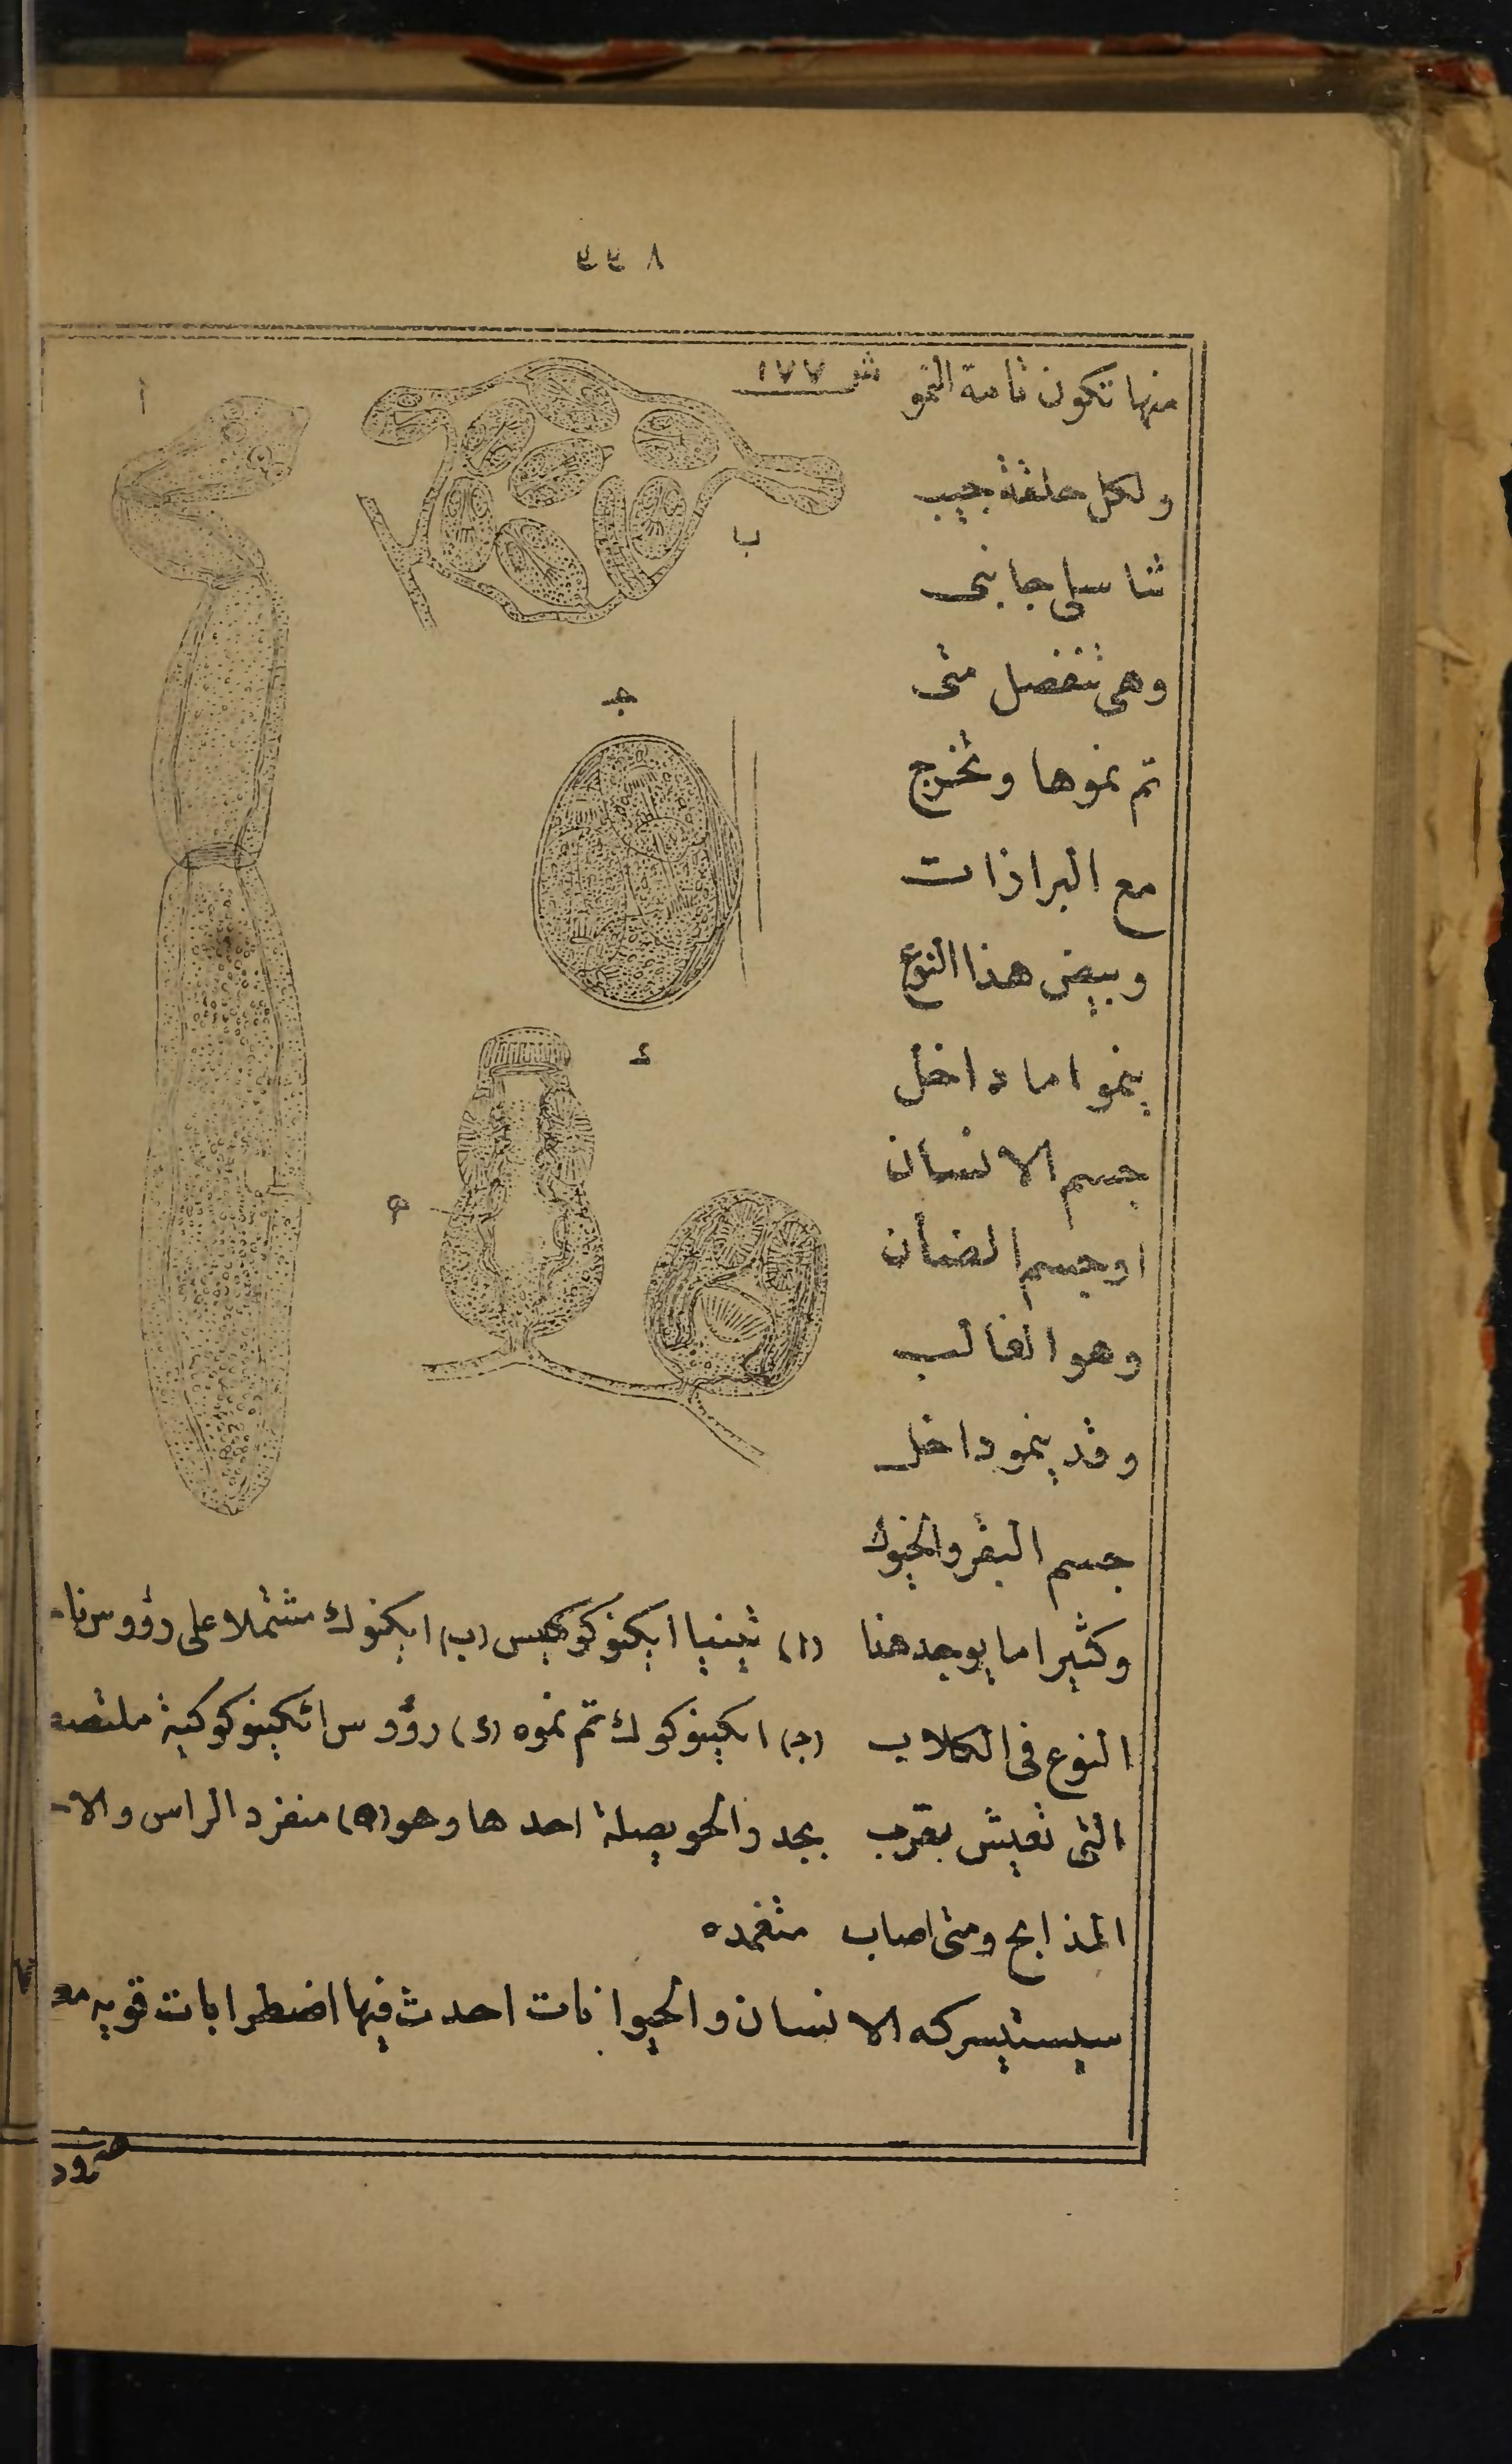 ٤٤٨
منها تكون تامة النمو
ش ١٧٧
ولكل حلقة جيب
تناسلى جانبى
وهى تنفصل متى
تم نموها وتخرج
مع البرازات
وبيض هذا النوع
ينمو اما داخل
جسم الانسان
اوجسم الضأن
وهو الغالب
وقد ينمو داخل
جسم البقر والخيول
وكثيرا ما يوجد هنا
النوع فى الكلاب
التى تعيش بقرب
المذابح ومتى اصاب
ا
ب
ج
د
ه
(ا) تينيا ايكنوكوكيس (ب) ايكنوك مشتملا على رؤوس نا-
(ج) ايكينوكوك تم نموه (د) رؤوس ايكينوكوكية ملتصقه
بجدر الحويصلة احدها وهو (ه) منفرد الراس والا-
منغمده
سيستيسركه الانسان والحيوانات احدث فيها اضطرابات قويه